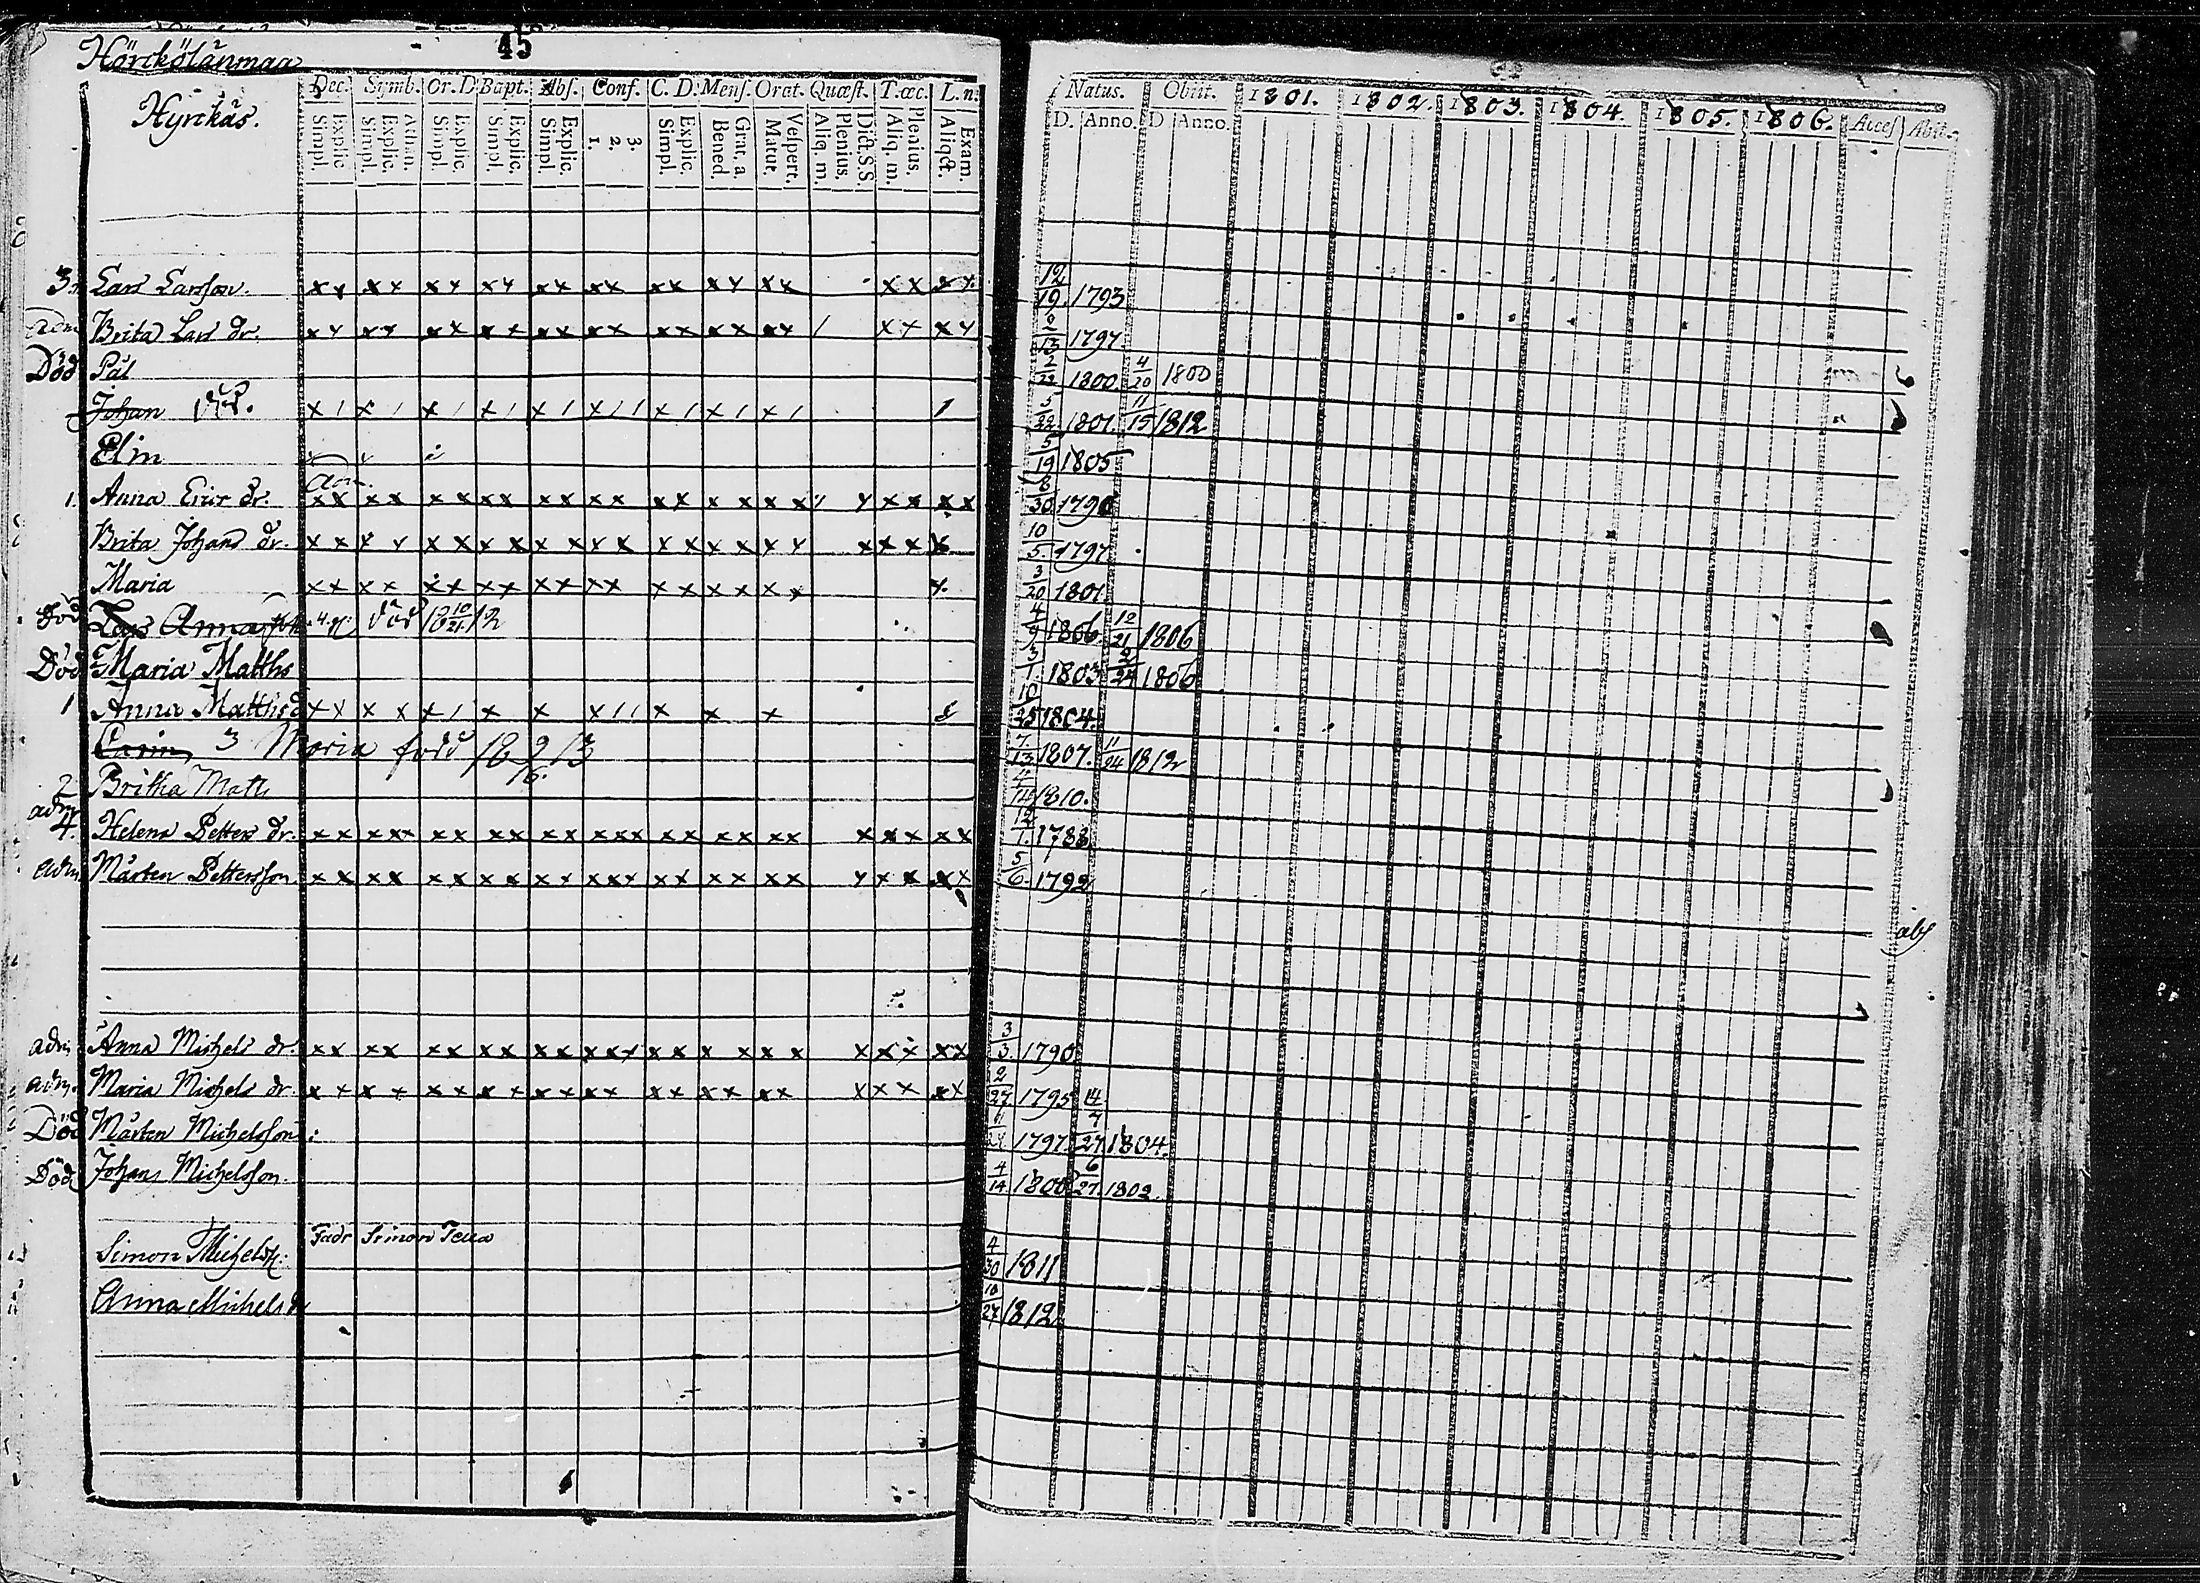 45
Hörckölänmaa
Hyrckäs.
Dec. Symb. Or. D Bapt. Abs. Conf. C. D. Mens. Orat. Quæst. T. œc. L. n.
Explic. Simpl. Athan. Explic. Simpl. Explic. Simpl. Explic. Simpl. Explic. Simpl. 3. 2. 1. Explic. Simpl. Grat. a Bened Vespert. Matut. Dict. S.S. Plenius. Aliq. m. Plenius. Aliq. m. Exam. Aliqct.
Natus. Obiit. 1801. 1802. 1803. 1804. 1805. 1806. Acces Abit.
D. Anno. D Anno.
3. Lars Larsson. x x x x x x x x x x x x x x x x x x x x x x 12/19 1793
adm Brita Lars dr. x x x x x x x x x x x x x x x x x x / x x x x 9/13 1797
Död Pål 2/22 1800 4/20 1800
Johan död. x / x / x / x / x / x / / x / x / x / / 5/22 1801. 11/15 1812
Elin 5/19 1805
adm.
1. Anna Eric dr. x x x x x x x x x x x x x x x x x x x x x x x 8/30 1790
Brita Johans dr. x x x x x x x x x x x x x x x x x x x x x x 10/5 1797
Maria x x x x x x x x x x x x x x x x x x x 3/20 1801
död Lars Anna död 18 10/21 12 4/9 1806 12/21 1806
Död Maria Matths 3/1 1803 1806
1 Anna Matths d x x x x x / x x x / / x x x 10/25 1804.
Carin 3 Maria född 18 9/16 13 7/13 1807. 11/24 1812
2 Britha Matts 1810.
adm
4. Helena Petters dr. x x x x x x x x x x x x x x x x x x x x x x x x x 12/1. 1788
adm Mårten Pettersson x x x x x x x x x x x x x x x x x x x x x x x x 5/6. 1792
abs
adm Anna Michels dr. x x x x x x x x x x x x x x x x x x x x x x x x 3/3. 1790
adm. Maria Michels dr. x x x x x x x x x x x x x x x x x x x x x x x 2/27 1795 14
Död Mårten Michelsson 1797. 4/27 1804.
Död Johans Michelsson. 4/14 1800 6/27. 1802.
Fadr Simon
Simon Michelss: 4/30 1811
Anna Michels d 10/27 1812